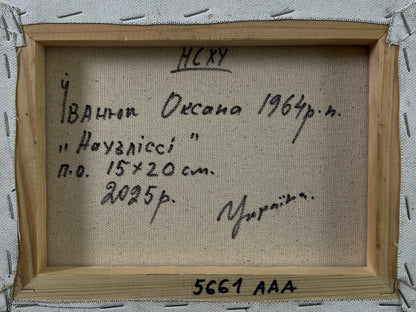 НСХУ
Іванюк Оксана 1964р.н.
„Наузліссі"
п.о. 15×20 см.
2025р.
Україна.
5661 AAA